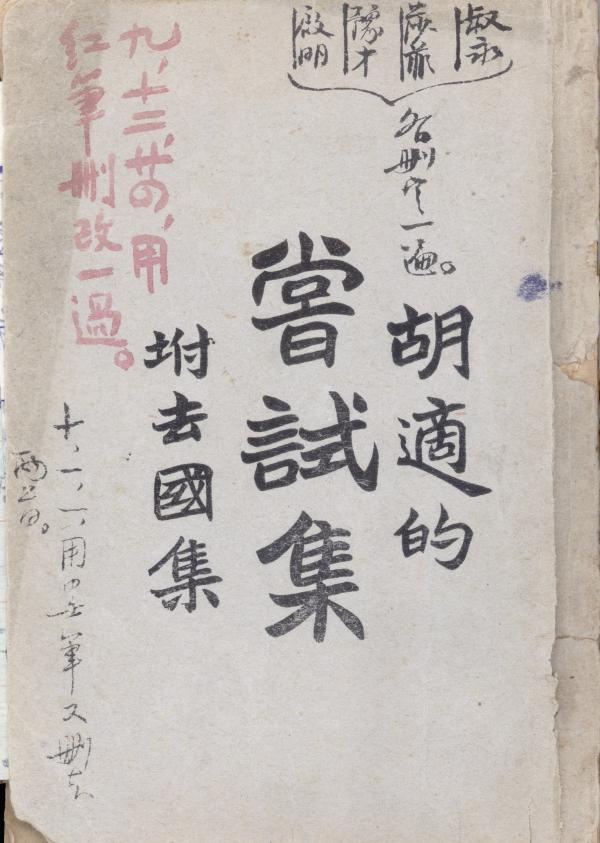 叔永
莎菲
豫才
啟明
各刪定一遍。
胡適的
嘗試集
坿去國集
九,十二,廿四,用
紅筆刪改一過。
十、一、一、用墨筆又刪去
兩三首。